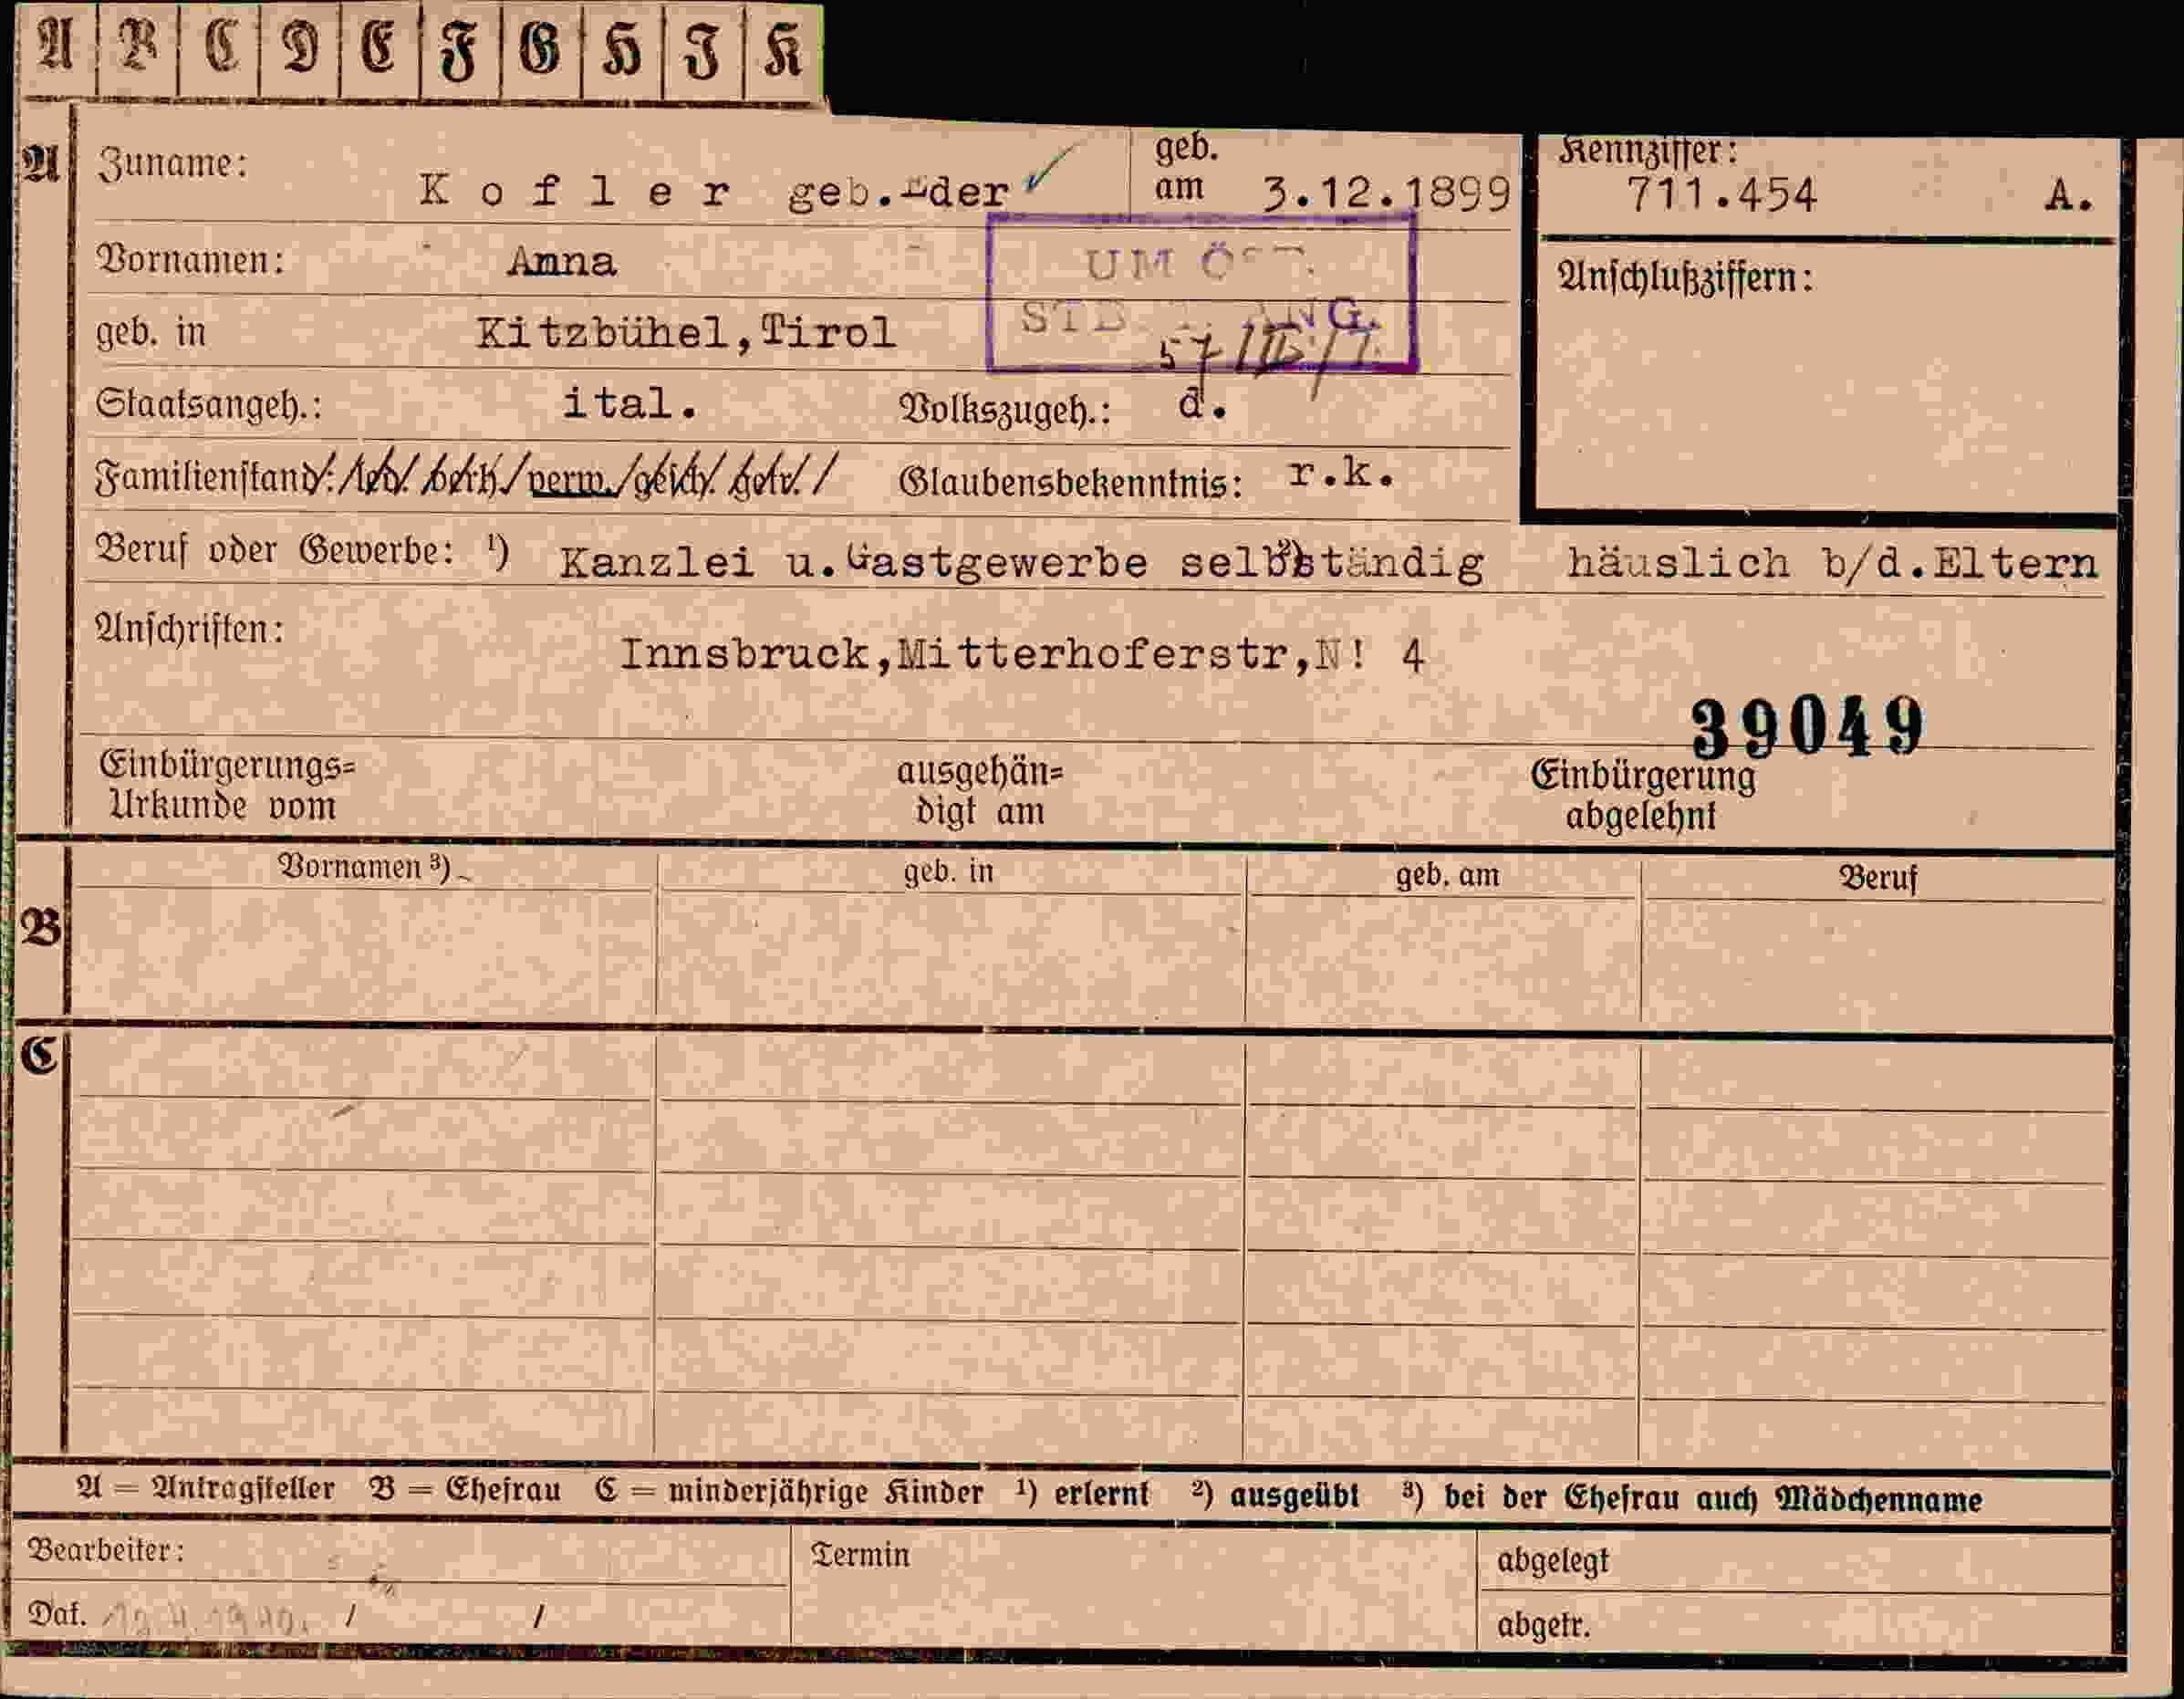 A B C D E F G H J K
A Zuname: Kofler geb. geb. am 3.12.1899 Kennziffer: 711.454 A.
Vornamen: Anna
UM
geb. in Kitzbühel,Tirol
Anschlußziffern:
Staatsangeh.: ital. Volkszugeh.: d.
Familienstand: led. verh. verw. gesch. getr. Glaubensbekenntnis: r.k.
Beruf oder Gewerbe: ¹) Kanzlei u.Gastgewerbe selbständig häuslich b/d.Eltern
Anschriften: Innsbruck,Mitterhoferstr,N! 4
39049
Einbürgerungs= Urkunde vom ausgehän= digt am Einbürgerung abgelehnt
B Vornamen ³) geb. in geb. am Beruf
C
A = Antragsteller B = Ehefrau C = minderjährige Kinder ¹) erlernt ²) ausgeübt ³) bei der Ehefrau auch Mädchenname
Bearbeiter: Termin abgelegt
Dat. / / abgetr.